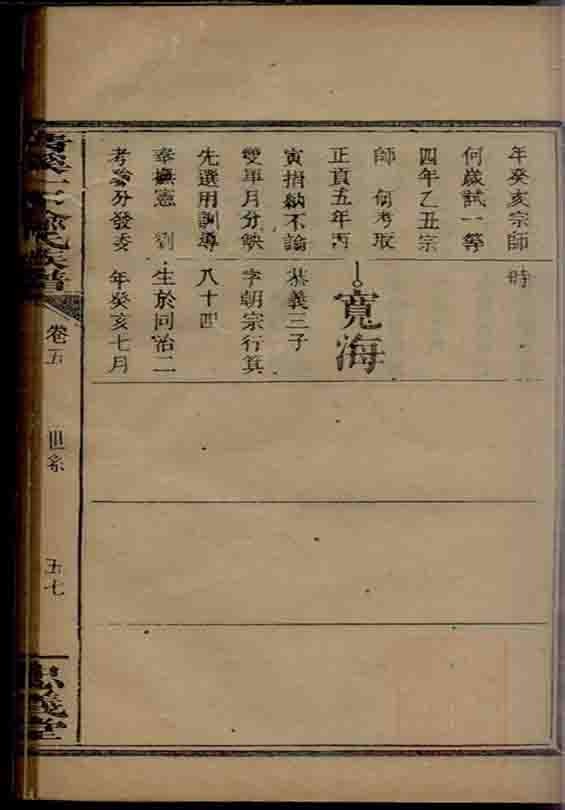 年癸亥宗師
何歲試一等
四年乙丑宗
師 何考取
正貢五年丙
寅捐納不論
雙單月分缺
先選用訓導
奉撫憲 劉
考驗分發委
時
寬海
基義三子
字朝宗行箕
八十四
生於同治二
年癸亥七月
氏族譜
卷五
世系
五七
忠義堂